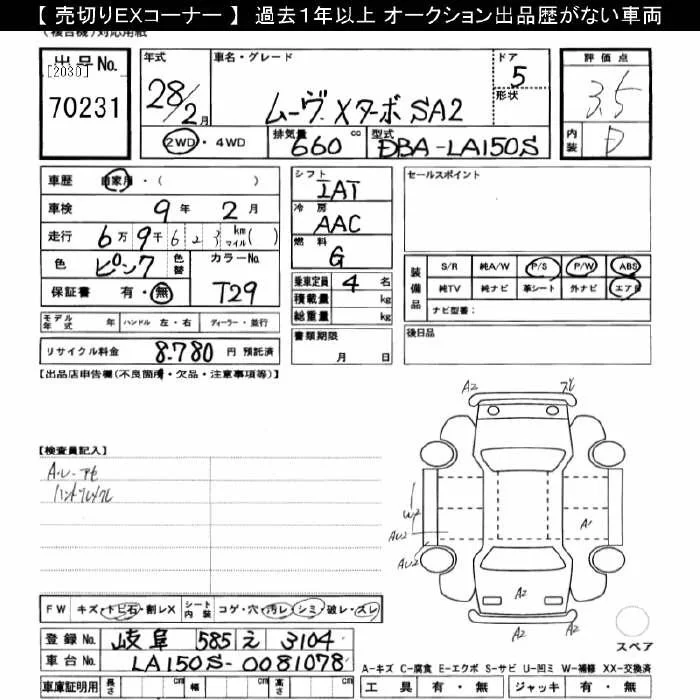 【 売切りEXコーナー 】 過去１年以上 オークション出品歴がない車両
(複合機)対応用紙
出品No. [2030] 70231
年式 28/2月
車名・グレード ムーヴ XターボSA2
ドア 5 形状
評価点 3.5
内装 D
2WD・4WD 排気量 660 cc 型式 DBA-LA150S
車歴 自家用・( )
車検 9年 2月
走行 6万9千623 km マイル( )
色 ピンク 色替 カラーNo. T29
保証書 有・無
シフト IAT
冷房 AAC
燃料 G
乗車定員 4名
積載量 kg
総重量 kg
書類期限 月 日
セールスポイント
装備品 S/R 純A/W P/S P/W ABS
純TV 純ナビ 革シート 外ナビ エアB
ナビ型番：
後日品
モデル年式 年 ハンドル 左・右 ディーラー・並行
リサイクル料金 8,780 円 預託済
【出品店申告欄(不良箇所・欠品・注意事項等)】
【検査員記入】
ハンドルスレ
A2
A2
W2
AU2
AU2
A1
A2
A2
FW キズ・トビ石・割レX シート内装 コゲ・穴・汚レ・シミ・破レ・スレ
スペア
登録No. 岐阜 585 え 3104
車台No. LA150S-0081078
A-キズ C-腐食 E-エクボ S-サビ U-凹ミ W-補修 XX-交換済
車庫証明用 長さ cm 幅 cm 高さ cm
工具 有・無 ジャッキ 有・無